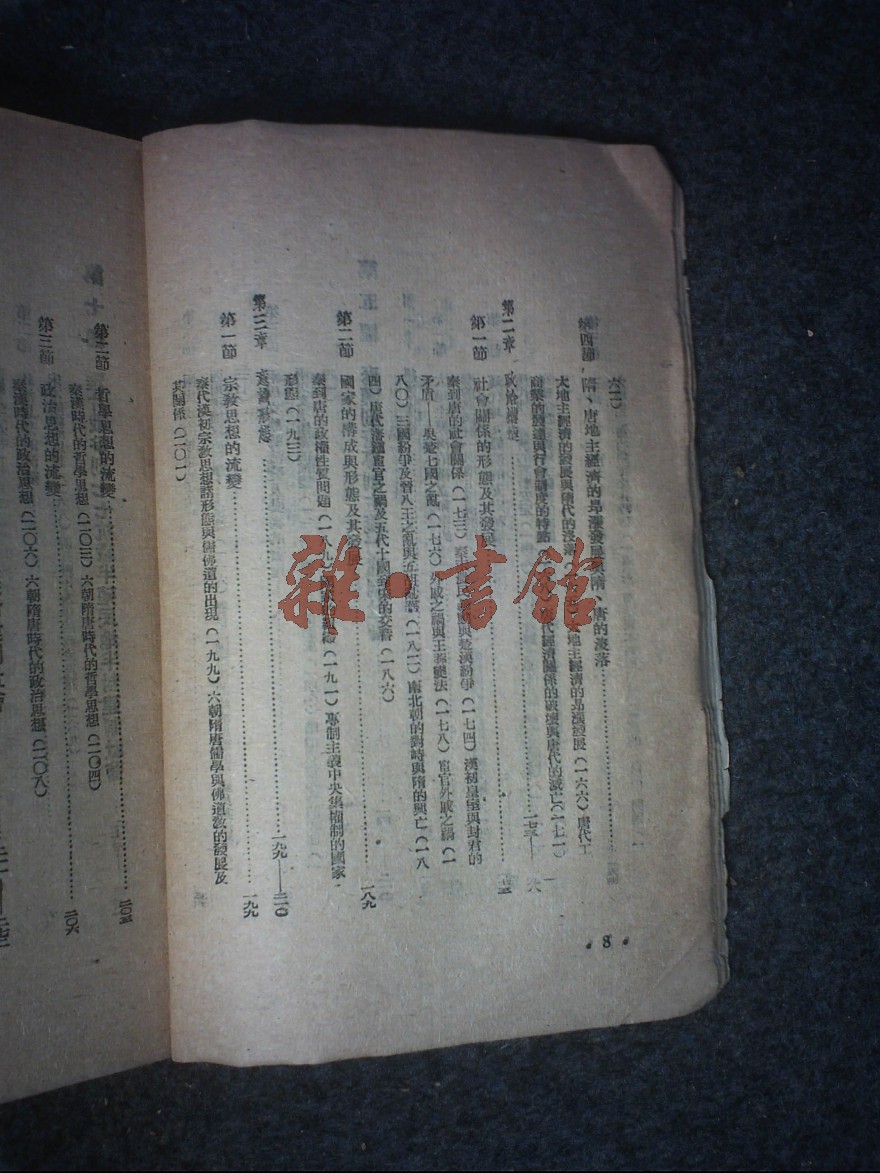 六二)
第四節 隋、唐地主經濟的昂漲發展與隋、唐的沒落
大地主經濟的發展與隋代的沒落 大地主經濟的昂漲發展(一六六)唐代工
商業的發達與行會制度的特點 代經濟關係的破壞與唐代的滅亡(一七一)
第二章 政治構造 一七三——一九
第一節 社會關係的形態及其發展
秦到唐的社會關係(一七三)秦 與楚漢紛爭(一七四)漢初皇室與封君的
矛盾——吳楚七國之亂(一七六)外戚之禍與王莽變法(一七八)宦官外戚之禍(一
八〇)三國紛爭及晉八王之亂與五胡 (一八二)南北朝的對峙與隋的興亡(一八
四)唐代藩鎮宦官之禍及五代十國到宋的交替(一八六)
第二節 國家的構成與形態及其發展 一八九
秦到唐的政權性質問題(一八九) (一九一)專制主義中央集權制的國家
形態(一九三)
第三章 意識形態 一九九——二一〇
第一節 宗教思想的流變 一九九
秦代漢初宗教思想諸形態與儒佛道的出現(一九九)六朝隋唐儒學與佛道教的發展及
其關係(二〇一)
• 8 •
第二節 哲學思想的流變 二〇三
秦漢時代的哲學思想(二〇三)六朝隋唐時代的哲學思想(二〇四)
第三節 政治思想的流變 二〇六
秦漢時代的政治思想(二〇六)六朝隋唐時代的政治思想(二〇八)
雜·書館